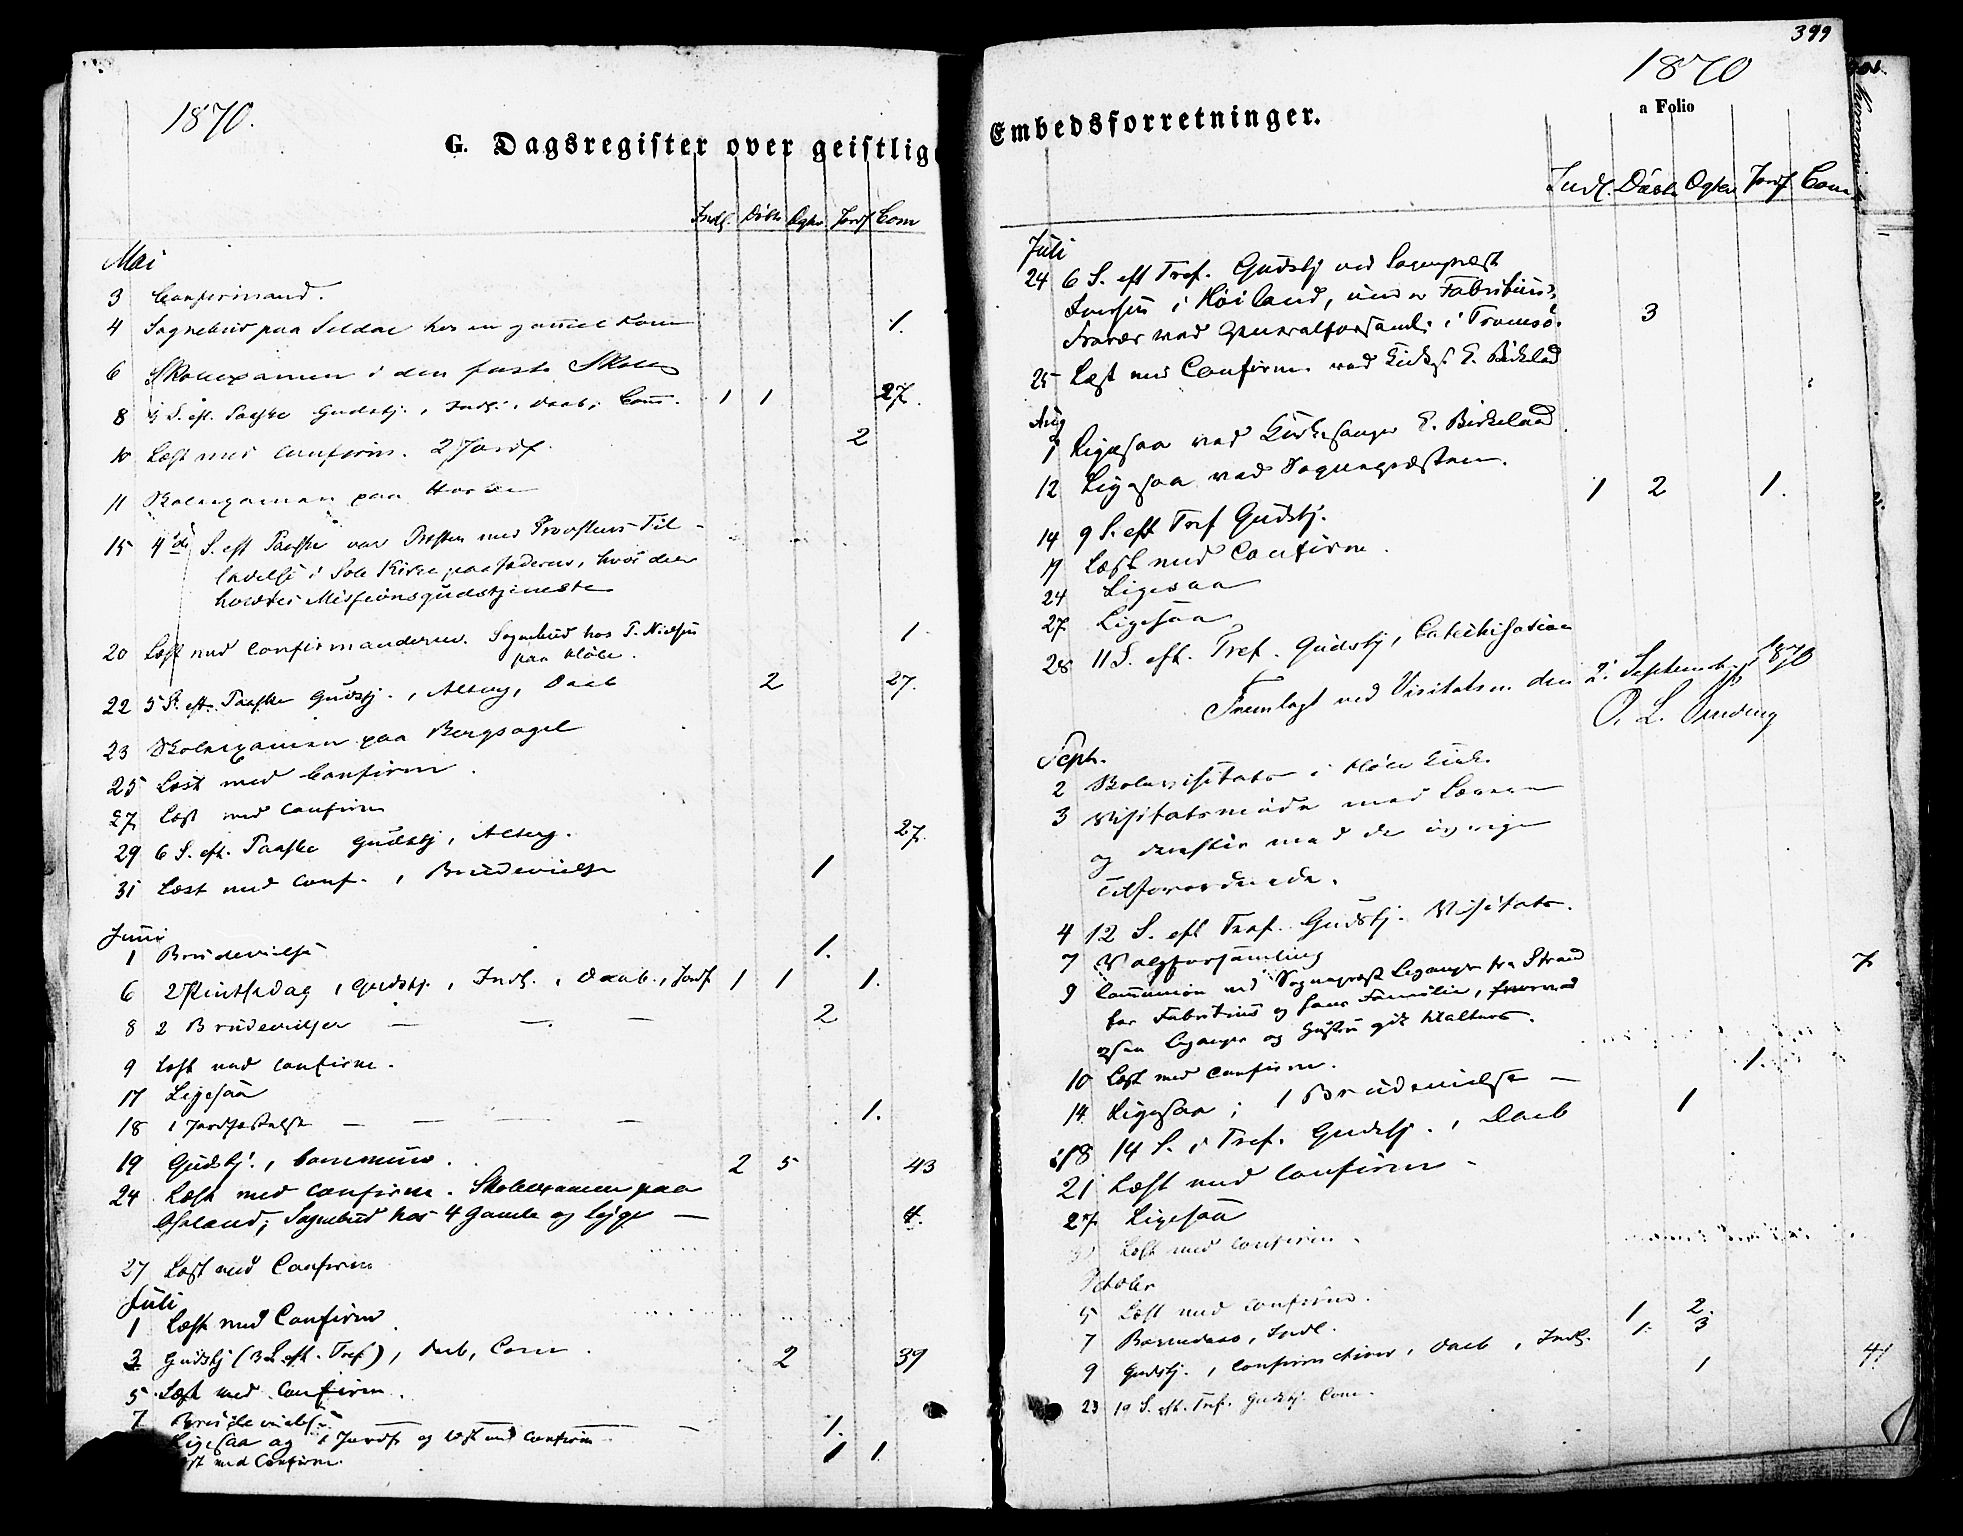 1870.
G. Dagsregister over geistlig
Indl. Døbte Ægtev Jordf Com
Mai
3 Confirmand.
4 Sognebud paa Seldal hos en gammel Kone 1.
6 Skoleexamen i den faste Skole
8 3 S. eft. Paaske Gudstj., Indl., Daab, Com. 1 1 27.
10 Læst med Confirm. 2 Jordf. 2
11 Skoleexamen paa
15 4de S. eft Paaske var Præsten med Provstens Til-
ladelse i Sole Kirke paa Jæderen, hvor der
holdtes Missionsgudstjeneste
20 Læst med Confirmanderne. Sognebud hos T. Nielsen 1.
paa Høle.
22 5 S. eft. Paaske Gudstj., Alterg, Daab 2 27.
23 Skoleexamen paa Bergsagel
25 Læst med Confirm.
27 Læst med Confirm
29 6 S. eft. Paaske Gudstj, Alterg. 27.
31 Læst med Conf., Brudevielse 1
Juni
1 Brudevielse 1.
6 2 Pintsedag, Gudstj., Indl., Daab., Jordf 1 1 1.
8 2 Brudevielser — — — 2
9 Læst med Confirm.
17 Ligesaa
18 1 Jordfæstelse — — — — 1.
19 Gudstj., Commun. 2 5 43
24 Læst med Confirm. Skoleexamen paa
Sognebud hos 4 Gamle og Syge — 4.
27 Læst med Confirm
Juli
1 Læst med Confirm
3 Gudstj (3 S. eft. Tref), Daab, Com. 2 39
5 Læst med Confirm.
7 Brudevielse — 1.
Ligesaa og 1 Jordf og Læst med Confirm 1 1
Læst med Confirm.
399
1870
Embedsforretninger.
a Folio
Indl. Daab. Ægtev Jordf Com
Juli
24 6 S. eft Tref. Gudstj ved Sognepræst
Iversen i Høiland, under Fabritius's
Fravær ved Generalforsaml. i Tromsø. 3
25 Læst med Confirm. ved Kirkes. E. Birkeland
Aug
1 Ligesaa ved Kirkesanger E. Birkeland
12 Ligesaa ved Sognepræsten.
14 9 S. eft Tref Gudstj. 1 2 1.
17 Læst med Confirm.
24 Ligesaa
27 Ligesaa
28 11 S. eft. Tref. Gudstj, Catechisation
Fremlagt ved Visitatsen den 2. September 1870
Sept.
2 Skolevisitats i Høle Kirke
3 Visitatsmøde med Lærerne
og derefter med de øvrige
Tilforordnede.
4 12 S. eft Tref. Gudstj. Visitats.
7 Valgforsamling
9 Communion ved Sognepræst Legangen fra Strand 7
for Fabritius og hans Familie,
ogsaa Legangen og Hustru gik til Alters.
10 Læst med Confirm.
14 Ligesaa; 1 Brudevielse — 1.
18 14 S. e Tref. Gudstj., Daab 1
21 Læst med Confirm.
27 Ligesaa
Læst med Confirm.
October
5 Læst med Confirm.
7 Barnedaab, Indl. 1. 2.
9 Gudstj., Confirmation, Daab, Indl. 1. 3
23 19 S. eft. Tref. Gudstj. Com. 1 41